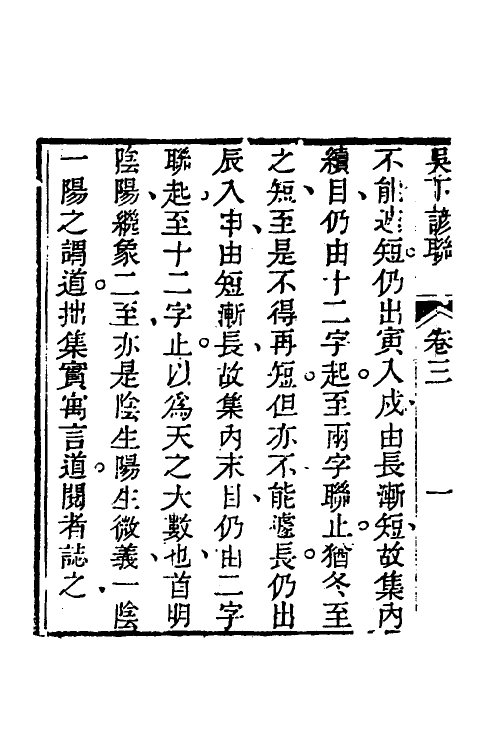 吳下諺聯 卷三 一
不能遽短仍出寅入戌由長漸短故集內
續目仍由十二字起至兩字聯止猶冬至
之短至是不得再短但亦不能遽長仍出
辰入申由短漸長故集內末目仍由二字
聯起至十二字止以爲天之大數也首明
陰陽繼象二至亦是陰生陽生微義一陰
一陽之謂道拙集實寓言道閱者誌之